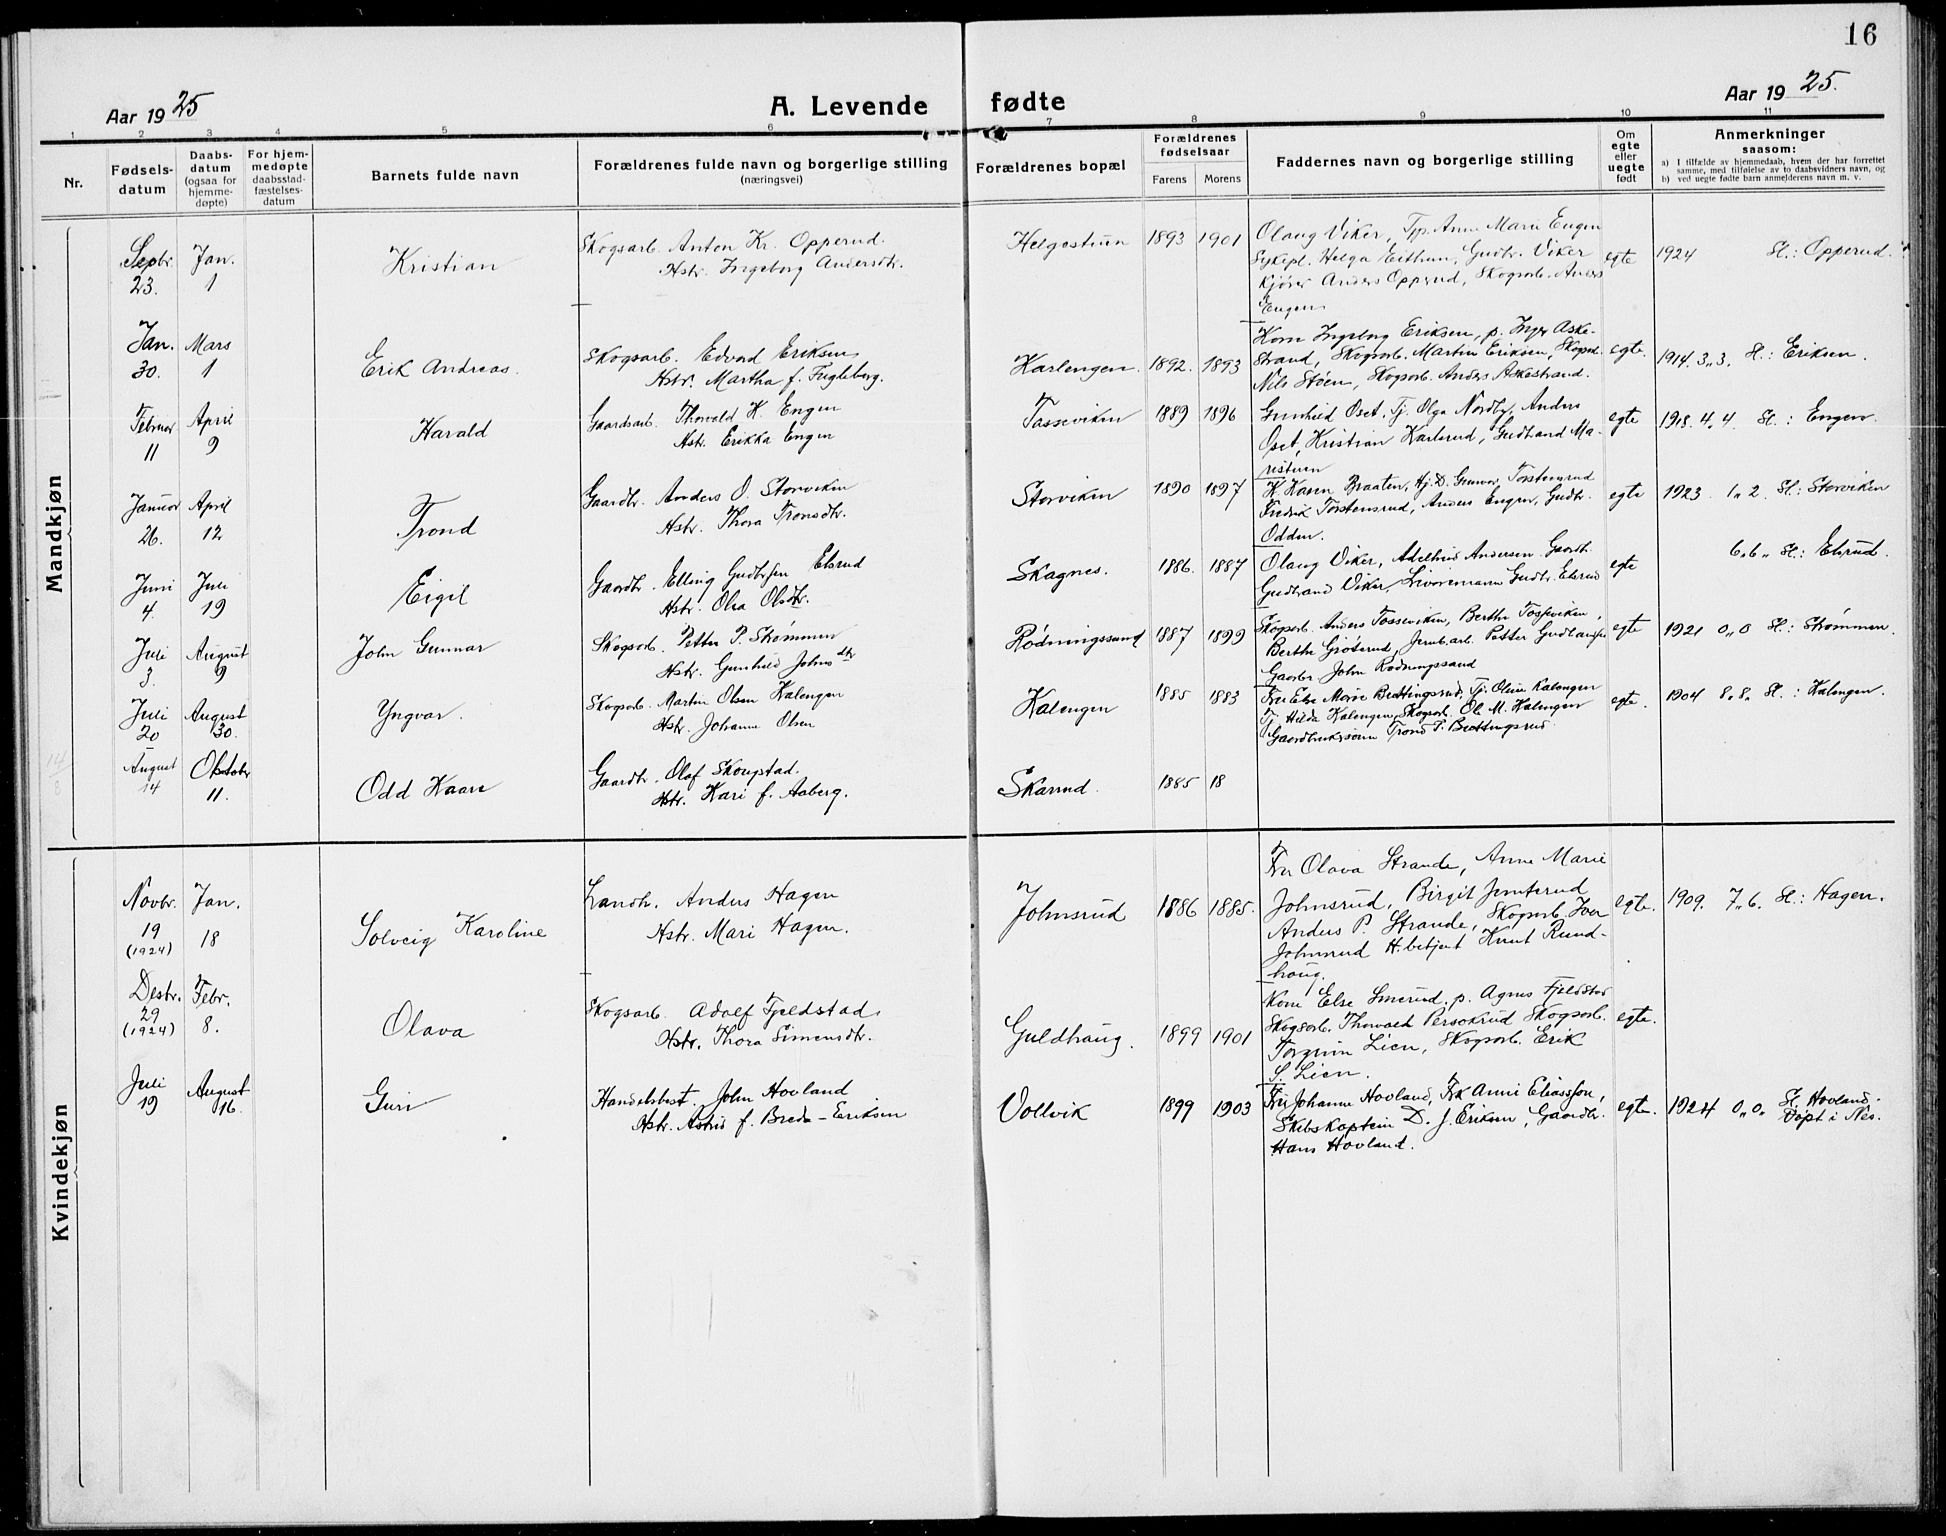 16
Aar 1925
A. Levende fødte
Aar 1925.
1 2 3 4 5 6 7 8 9 10 11
Nr.
Fødsels-
datum
Daabs-
datum
(ogsaa for
hjemme-
døpte)
For hjem-
medøpte
daabsstad-
fæstelses-
datum
Barnets fulde navn
Forældrenes fulde navn og borgerlige stilling
(næringsvei)
Forældrenes bopæl
Forældrenes
fødselsaar
Farens Morens
Faddernes navn og borgerlige stilling
Om
egte
eller
uegte
født
Anmerkninger
saasom:
a) I tilfælde av hjemmedaab, hvem der har forrettet
samme, med tilføielse av to daabsvidners navn, og
b) ved uegte fødte barn anmelderens navn m. v.
Mandkjøn
Septbr. 23. Jan. 1
Kristian
Skogsarb. Anton Kr. Opperud.
Hstr. Ingeborg Andersdtr.
Helgestuen 1893 1901
Olaug Viker, Tjp. Anne Marie Engen
Sykepl. Helga Eithun, Gudbr. Viker
Kjører Anders Opperud, Skogsarb. Anders
Engen
egte 1924 Sl.: Opperud.
Jan. 30. Mars 1
Erik Andreas.
Skogsarb. Edvard Eriksen
Hstr. Martha f. Fugleberg.
Karlengen. 1892. 1893
Kone Ingeborg Eriksen, p. Inger Aske-
strand, Skogsarb. Martin Eriksen, Skogsarb.
Nils Støen, Skogsarb. Anders Askestrand.
egte. 1914. 3,,3. Sl.: Eriksen.
Februar 11 April 9
Harald
Gaardsarb. Thorvald K. Engen
Hstr. Erikka Engen
Tosseviken 1889 1896
Gunhild Oset, Tj. Olga Nordby, Anders
Oset, Kristian Karlsrud, Gudbrand Ma-
ristuen
egte 1918. 4,,4. Sl.: Engen.
Januar 26. April 12
Trond
Gaardbr. Anders O. Storviken
Hstr. Thora Tronsdtr.
Storviken 1890 1897
K. Karen Braaten, Hj.D. Gunvor Torstensrud
Fredrik Torstensrud, Anders Engen, Gudbr.
Odden.
egte 1923. 1,,2. Sl.: Storviken
Juni 4. Juli 19
Eigil
Gaardbr. Elling Gudbrsen Elsrud
Hstr. Olea Olsdtr.
Skagnes. 1886. 1887
Olaug Viker, Adelheid Andersen. Gaardb.
Gudbrand Viker, Gudbr. Elsrud
egte 6,,6,, Sl.: Elsrud.
Juli 3. August 9
John Gunnar
Skogsarb. Petter P. Strømmen
Hstr. Gunhild Johnsdtr
Rødningssand 1887 1899
Skogsarb. Anders Tosseviken, Berthe Tosseviken,
Berthe Grøterud, Jernb.arb. Petter
Gaardbr John Rødningssand
egte 1921 0,,0 Sl.: Strømmen.
Juli 20 August 30.
Yngvar.
Skogsarb. Martin Olsen Kalengen
Hstr. Johanne Olsen
Kalengen 1885 1883
Fru Else Marie Brettingsrud, Tj. Oline Kalengen
Tj. Hilda Kalengen, Skogsarb. Ole M. Kalengen
Gaardbrukersønn Trond P. Brettingsrud.
egte. 1904 8,,8,, Sl.: Kalengen.
14/8
August 14 Oktober 11.
Odd Kaare
Gaardbr. Olaf Skougstad.
Hstr. Kari f. Aaberg.
Skarrud. 1885 18
Kvindekjøn
Novbr. 19 (1924) Jan. 18
Solveig Karoline
Landh. Anders Hagen
Hstr. Mari Hagen.
Johnsrud 1886 1885.
Fru Olava Strande, Anne Marie
Johnsrud, Birgit Jemterud
Anders P. Strande, Skogsarb. Iver
Johnsrud H.betjent Knut Rund-
haug.
egte. 1909. 7,,6. Sl.: Hagen.
Desbr. 29 (1924) Febr. 8.
Olava
Skogsarb. Adolf Fjeldstad.
Hstr. Thora Simensdtr.
Guldhaug. 1899 1901
Kone Else Smerud, p. Agnes Fjeldstad
Skogsarb. Thorvald Persokrud Skogsarb.
Torgrim Lien, Skogsarb. Erik
S. Lien.
egte.
Juli 19 August 16.
Guri
Handelsbest. John Hovland
Hstr. Astrid f. Breda-Eriksen
Vollvik 1899 1903
Fru Johanne Hovland, Frk Anni Eliassson,
Skibskaptein D. J. Eriksen, Gaardbr.
Hans Hovland.
egte. 1924 0,,0. Sl. Hovland.
Døpt i Nes.